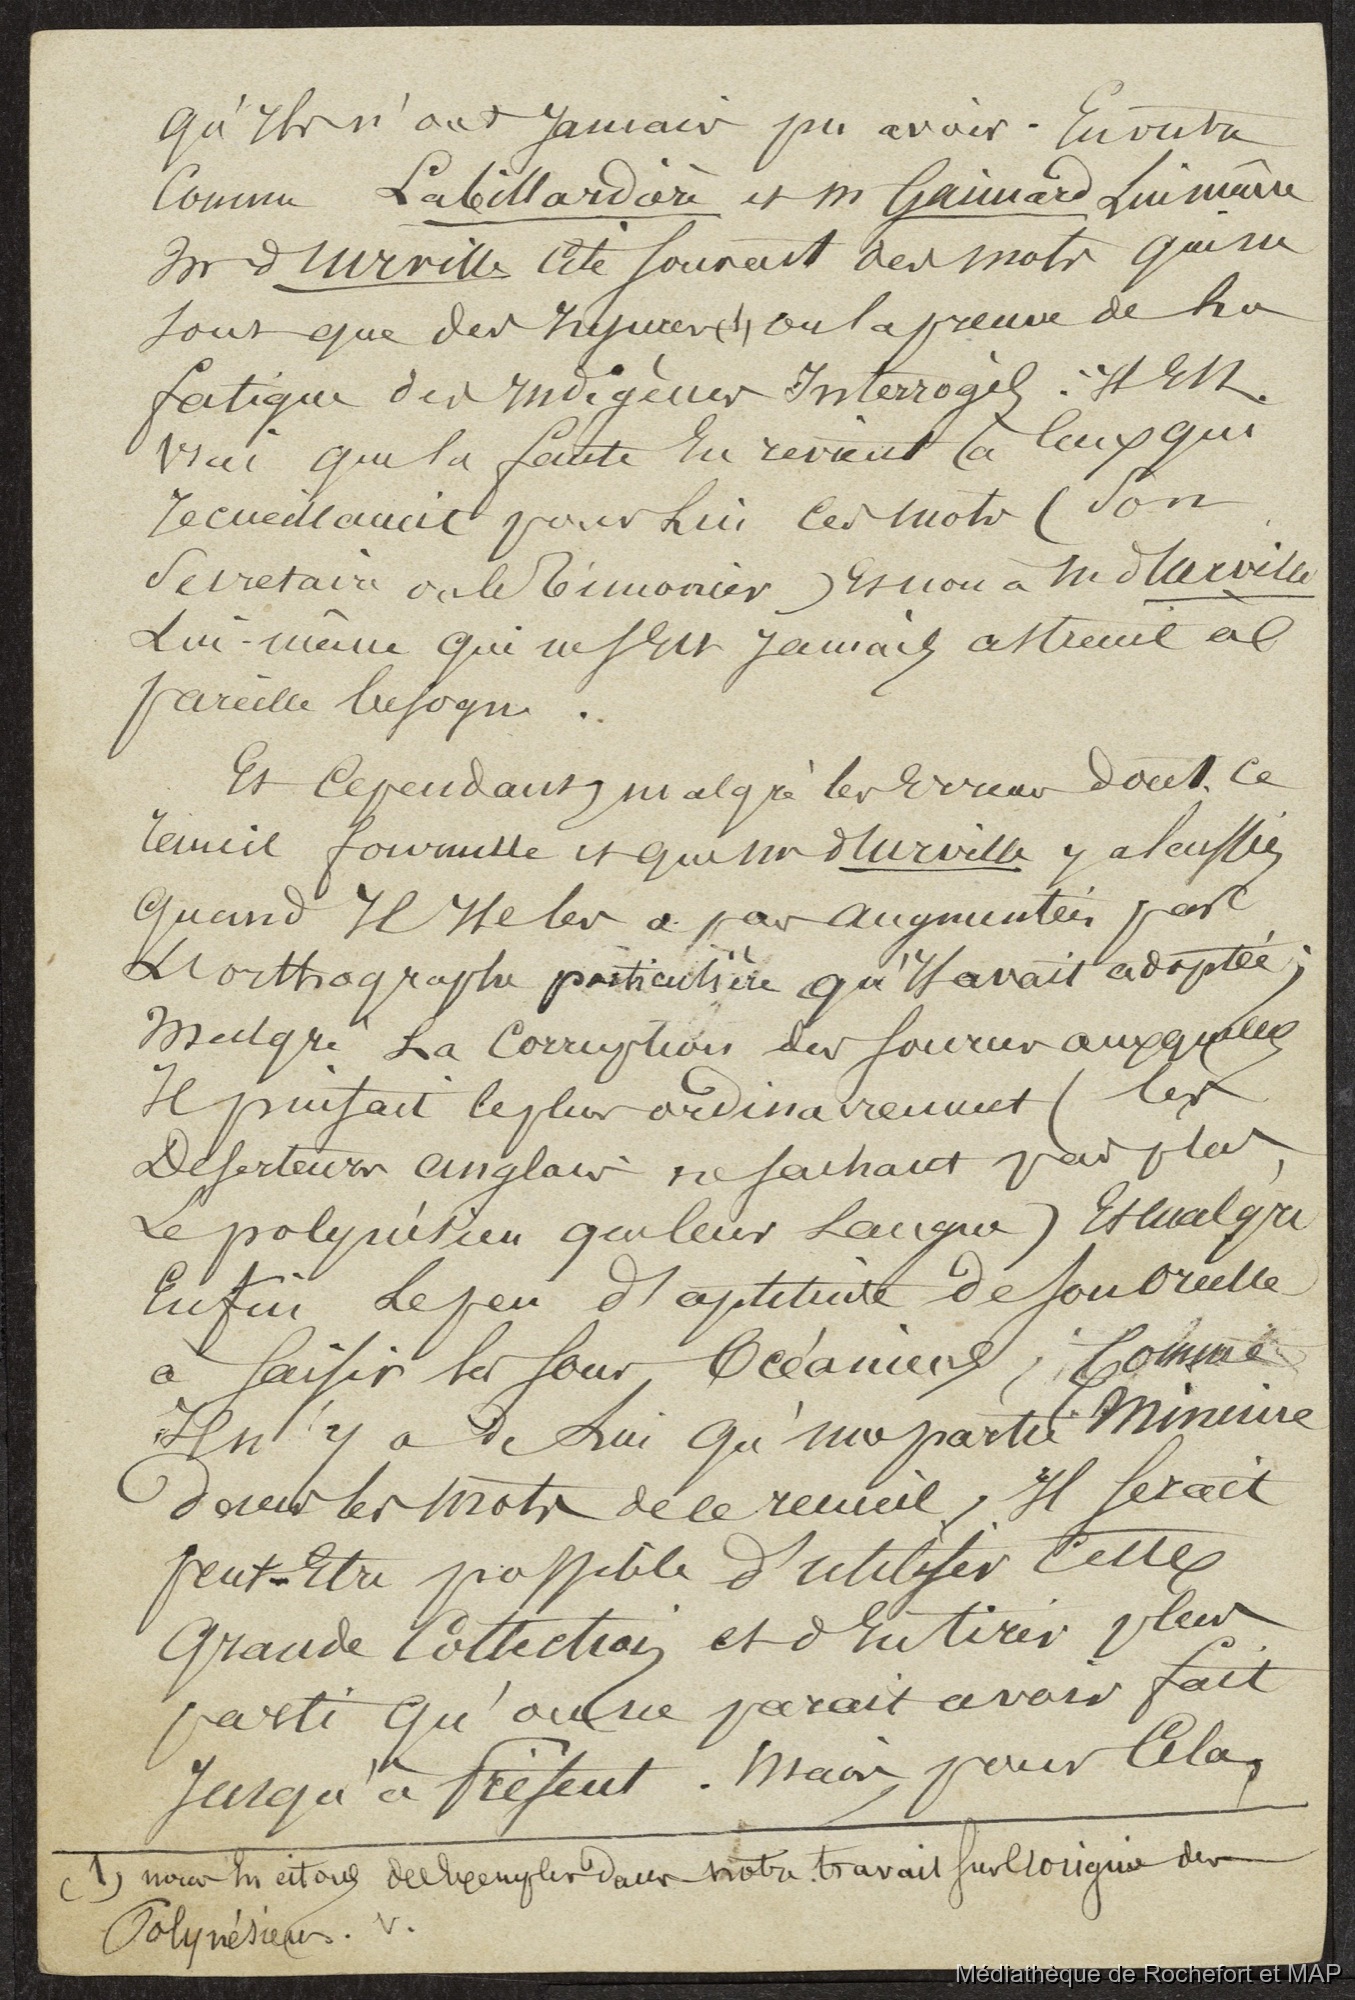 qu'Ils n'ont Jamais pu avoir. En outre
Comme Labillardière et m Gaimard Lui même
Mr d'Urville Cite souvent des mots qui ne
sont que des Injures (1) ou la preuve de la
fatigue des Indigènes Interrogés. Il Est
vrai que la faute En revient à Ceux qui
recueillaient pour Lui Ces mots (Son
Secretaire ou le Timonier) Et non à m d'Urville
Lui-même qui ne s'Est Jamais astreint à
pareille besogne.
Et Cependant, malgré les Erreurs dont Ce
recueil fourmille et que mr d'Urville y a laissées
quand Il ne les a pas augmentées par
L'orthographe particulière qu'Il avait adoptée;
Malgré La Corruption des sources auxquelles
Il puisait le plus ordinairement (les
Deserteurs anglais ne sachant pas plus
Le polynésien que leur Langue) Et malgré
Enfin Le peu d'aptitude de son Oreille
à saisir les sons Océaniens, Comme
Il n'y a de Lui qu'une partie Minime
dans les mots de ce recueil, Il serait
peut-Etre possible d'utiliser Cette
grande Collection et d'En tirer plus
parti qu'on ne parait avoir fait
Jusqu'à Présent. Mais, pour Cela,
(1) nous En citons des Exemples Dans notre travail sur l'origine des
Polynésiens. v.
Médiathèque de Rochefort et MAP